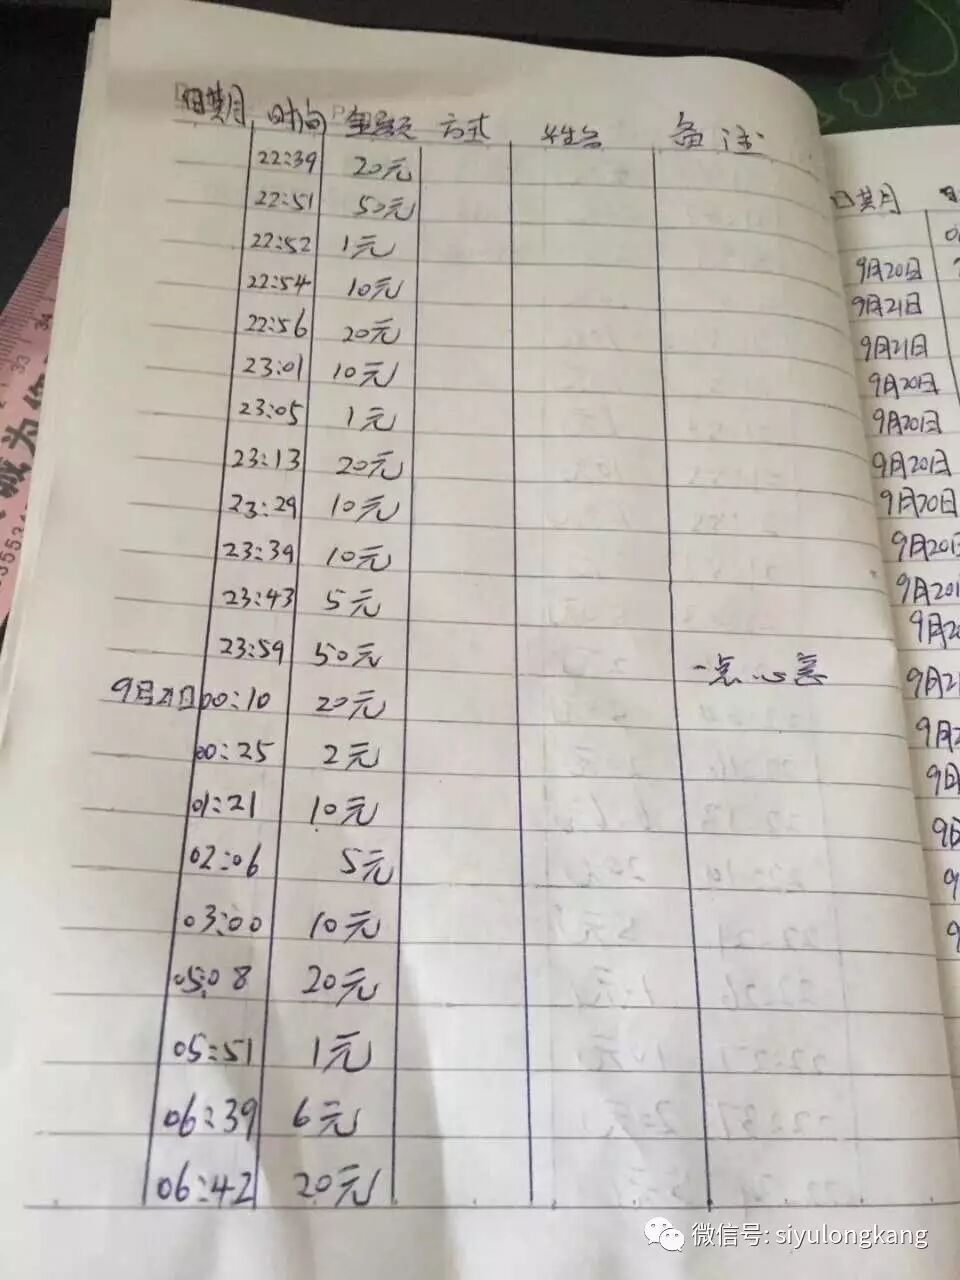 日期 时间 金额 方式 姓名 备注
22:39 20元
22:51 50元
22:52 1元
22:54 10元
22:56 20元
23:01 10元
23:05 1元
23:13 20元
23:29 10元
23:39 10元
23:43 5元
23:59 50元 一点心意
9月21日 00:10 20元
00:25 2元
01:21 10元
02:06 5元
03:00 10元
05:08 20元
05:51 1元
06:39 6元
06:42 20元
日期
9月20日
9月21日
9月21日
9月20日
9月20日
9月20日
9月20日
9月20日
9月20日
9月20
9月21
9月2
9月
9月
9
9
诚为你
34
33
微信号: siyulongkang